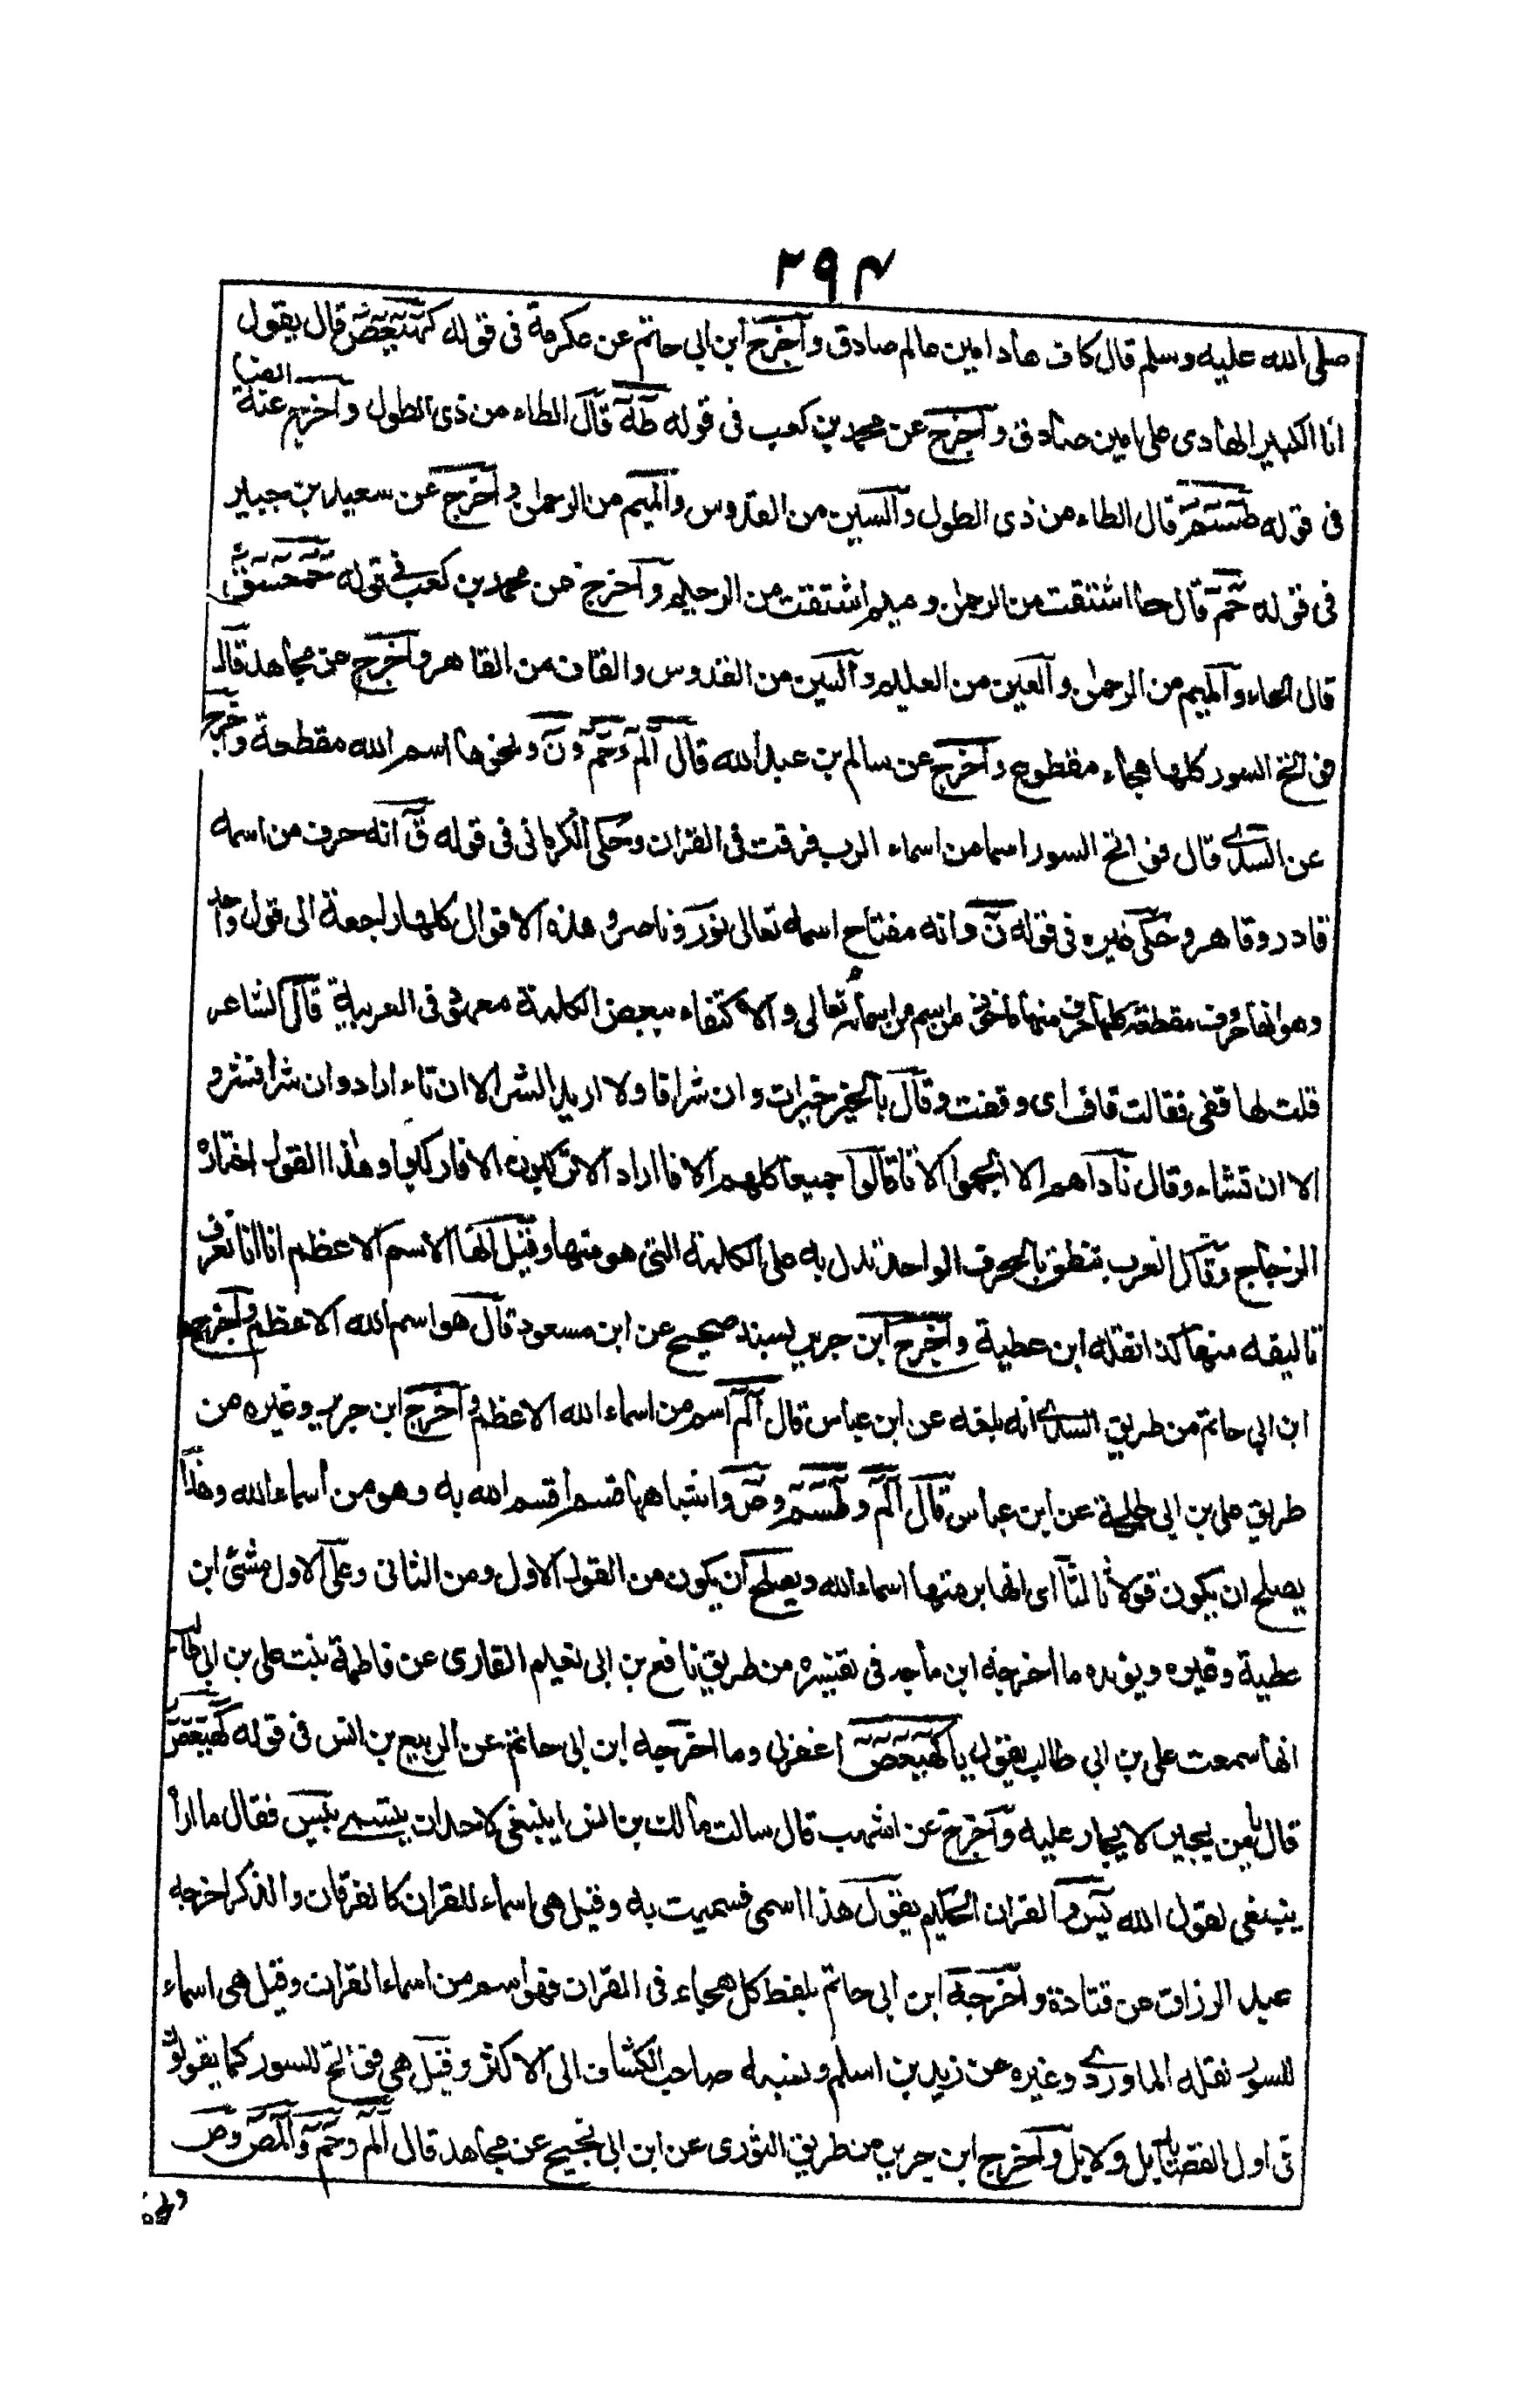 ٢٩٤
صلى الله عليه وسلم قال كاف هاد امين عالم صادق واخرج ابن ابي حاتم عن عكرمة فى قوله كهيعص قال يقول
انا الكبير الهادى على امين صادق واخرج عن محمد بن كعب فى قوله طه قال الطاء من ذى الطول واخرج عنه ايضا
فى قوله طسم قال الطاء من ذى الطول والسين من القدوس والميم من الرحمن واخرج عن سعيد بن جبير
فى قوله حم قال حا اشتقت من الرحمن وميم اشتقت من الرحيم واخرج عن محمد بن كعب فى قوله حمعسق
قال الحاء والميم من الرحمن والعين من العليم والسين من القدوس والقاف من القاهر واخرج عن مجاهد قال
فواتح السور كلها هجاء مقطوع واخرج عن سالم بن عبد الله قال الم وحم ون ونحوها اسم الله مقطعة واخرج
عن السدى قال فواتح السور اسما من اسماء الرب فرقت فى القران وحكى الكرمانى فى قوله ق انه حرف من اسمه
قادر وقاهر وحكى غيره فى قوله ن وانه مفتاح اسمه تعالى نور وناصر وهذه الاقوال كلها راجعة الى قول واحد
وهو انها حروف مقطعة كل حرف منها ماخوذ من اسم من اسمائه تعالى والاكتفاء ببعض الكلمة معهود فى العربية قال الشاعر
قلت لها قفى فقالت قاف اى وقفت وقال بالخير خيرات وان شرا فا ولا اريد الشر الا ان تاء اراد وان شرا فشر و
الا ان تشاء وقال ناداهم الا الجموا الا تا قالوا جميعا كلهم الا فا اراد الا تركبون الا فاركبوا وهذا القول اختاره
الزجاج وقال العرب تنطق بالحرف الواحد تدل به على الكلمة التى هو منها وقيل انها الاسم الاعظم الا انا لا نعرف
تاليفه منها كذا نقله ابن عطية واخرج ابن جرير بسند صحيح عن ابن مسعود قال هو اسم الله الاعظم واخرج
ابن ابي حاتم من طريق السدى انه بلغه عن ابن عباس قال الم اسم من اسماء الله الاعظم واخرج ابن جرير وغيره من
طريق على بن ابى طلحة عن ابن عباس قال الم وطسم وص واشباهها قسم اقسم الله به وهو من اسماء الله وهذا
يصلح ان يكون قولا ثالثا اى انها برمتها اسماء الله ويصلح ان يكون من القول الاول ومن الثانى وعلى الاول مشى ابن
عطية وغيره ويؤيده ما اخرجه ابن ماجه فى تفسيره من طريق نافع بن ابى نعيم القارى عن فاطمة بنت على بن ابى طالب
انها سمعت على بن ابي طالب يقول يا كهيعص اغفرلى وما اخرجه ابن ابى حاتم عن الربيع بن انس فى قوله كهيعص
قال يا من يجير لا يجار عليه واخرج عن اشهب قال سالت مالك بن انس اينبغى لاحد ان يتسمى بيس فقال ما اراه
ينبغى لقول الله يس والقران الحكيم يقول هذا اسمى تسميت به وقيل هى اسماء للقران كالفرقان والذكر اخرجه
عبد الرزاق عن قتادة واخرجه ابن ابى حاتم بلفظ كل هجاء فى القران فهو اسم من اسماء القران وقيل هى اسماء
للسور نقله الماوردى وغيره عن زيد بن اسلم ونسبه صاحب الكشاف الى الاكثر وقيل هى فواتح للسور كما يقولون
فى اول القصائد بل ولا بل واخرج ابن جرير من طريق الثورى عن ابن ابى نجيح عن مجاهد قال الم وحم والمص وص